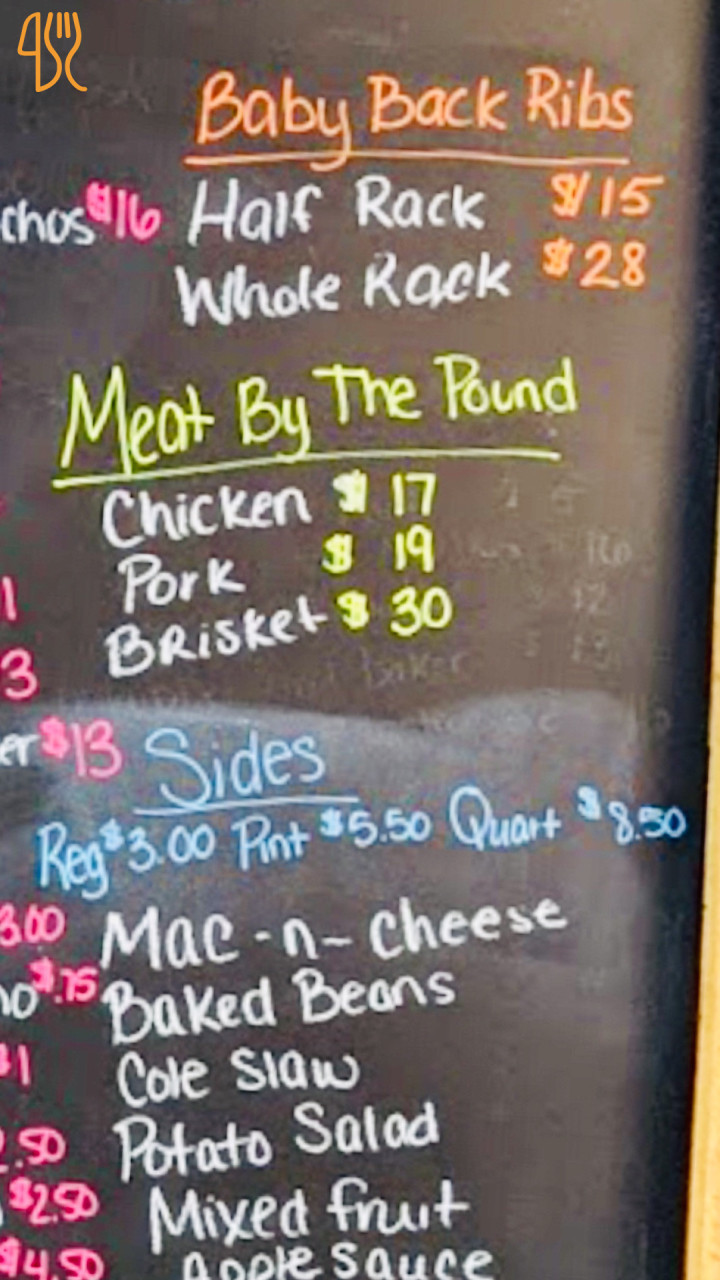 Baby Back Ribs
chos $16 Half Rack $15
Whole Rack $28
Meat By The Pound
Chicken $ 17
Pork $ 19
1
Brisket $ 30
3
er $13 Sides
Reg $3.00 Pint $5.50 Quart $8.50
3.00 Mac-n-cheese
no $.75 Baked Beans
$1 Cole Slaw
2.50 Potato Salad
$2.50 Mixed fruit
$4.50 Applesauce